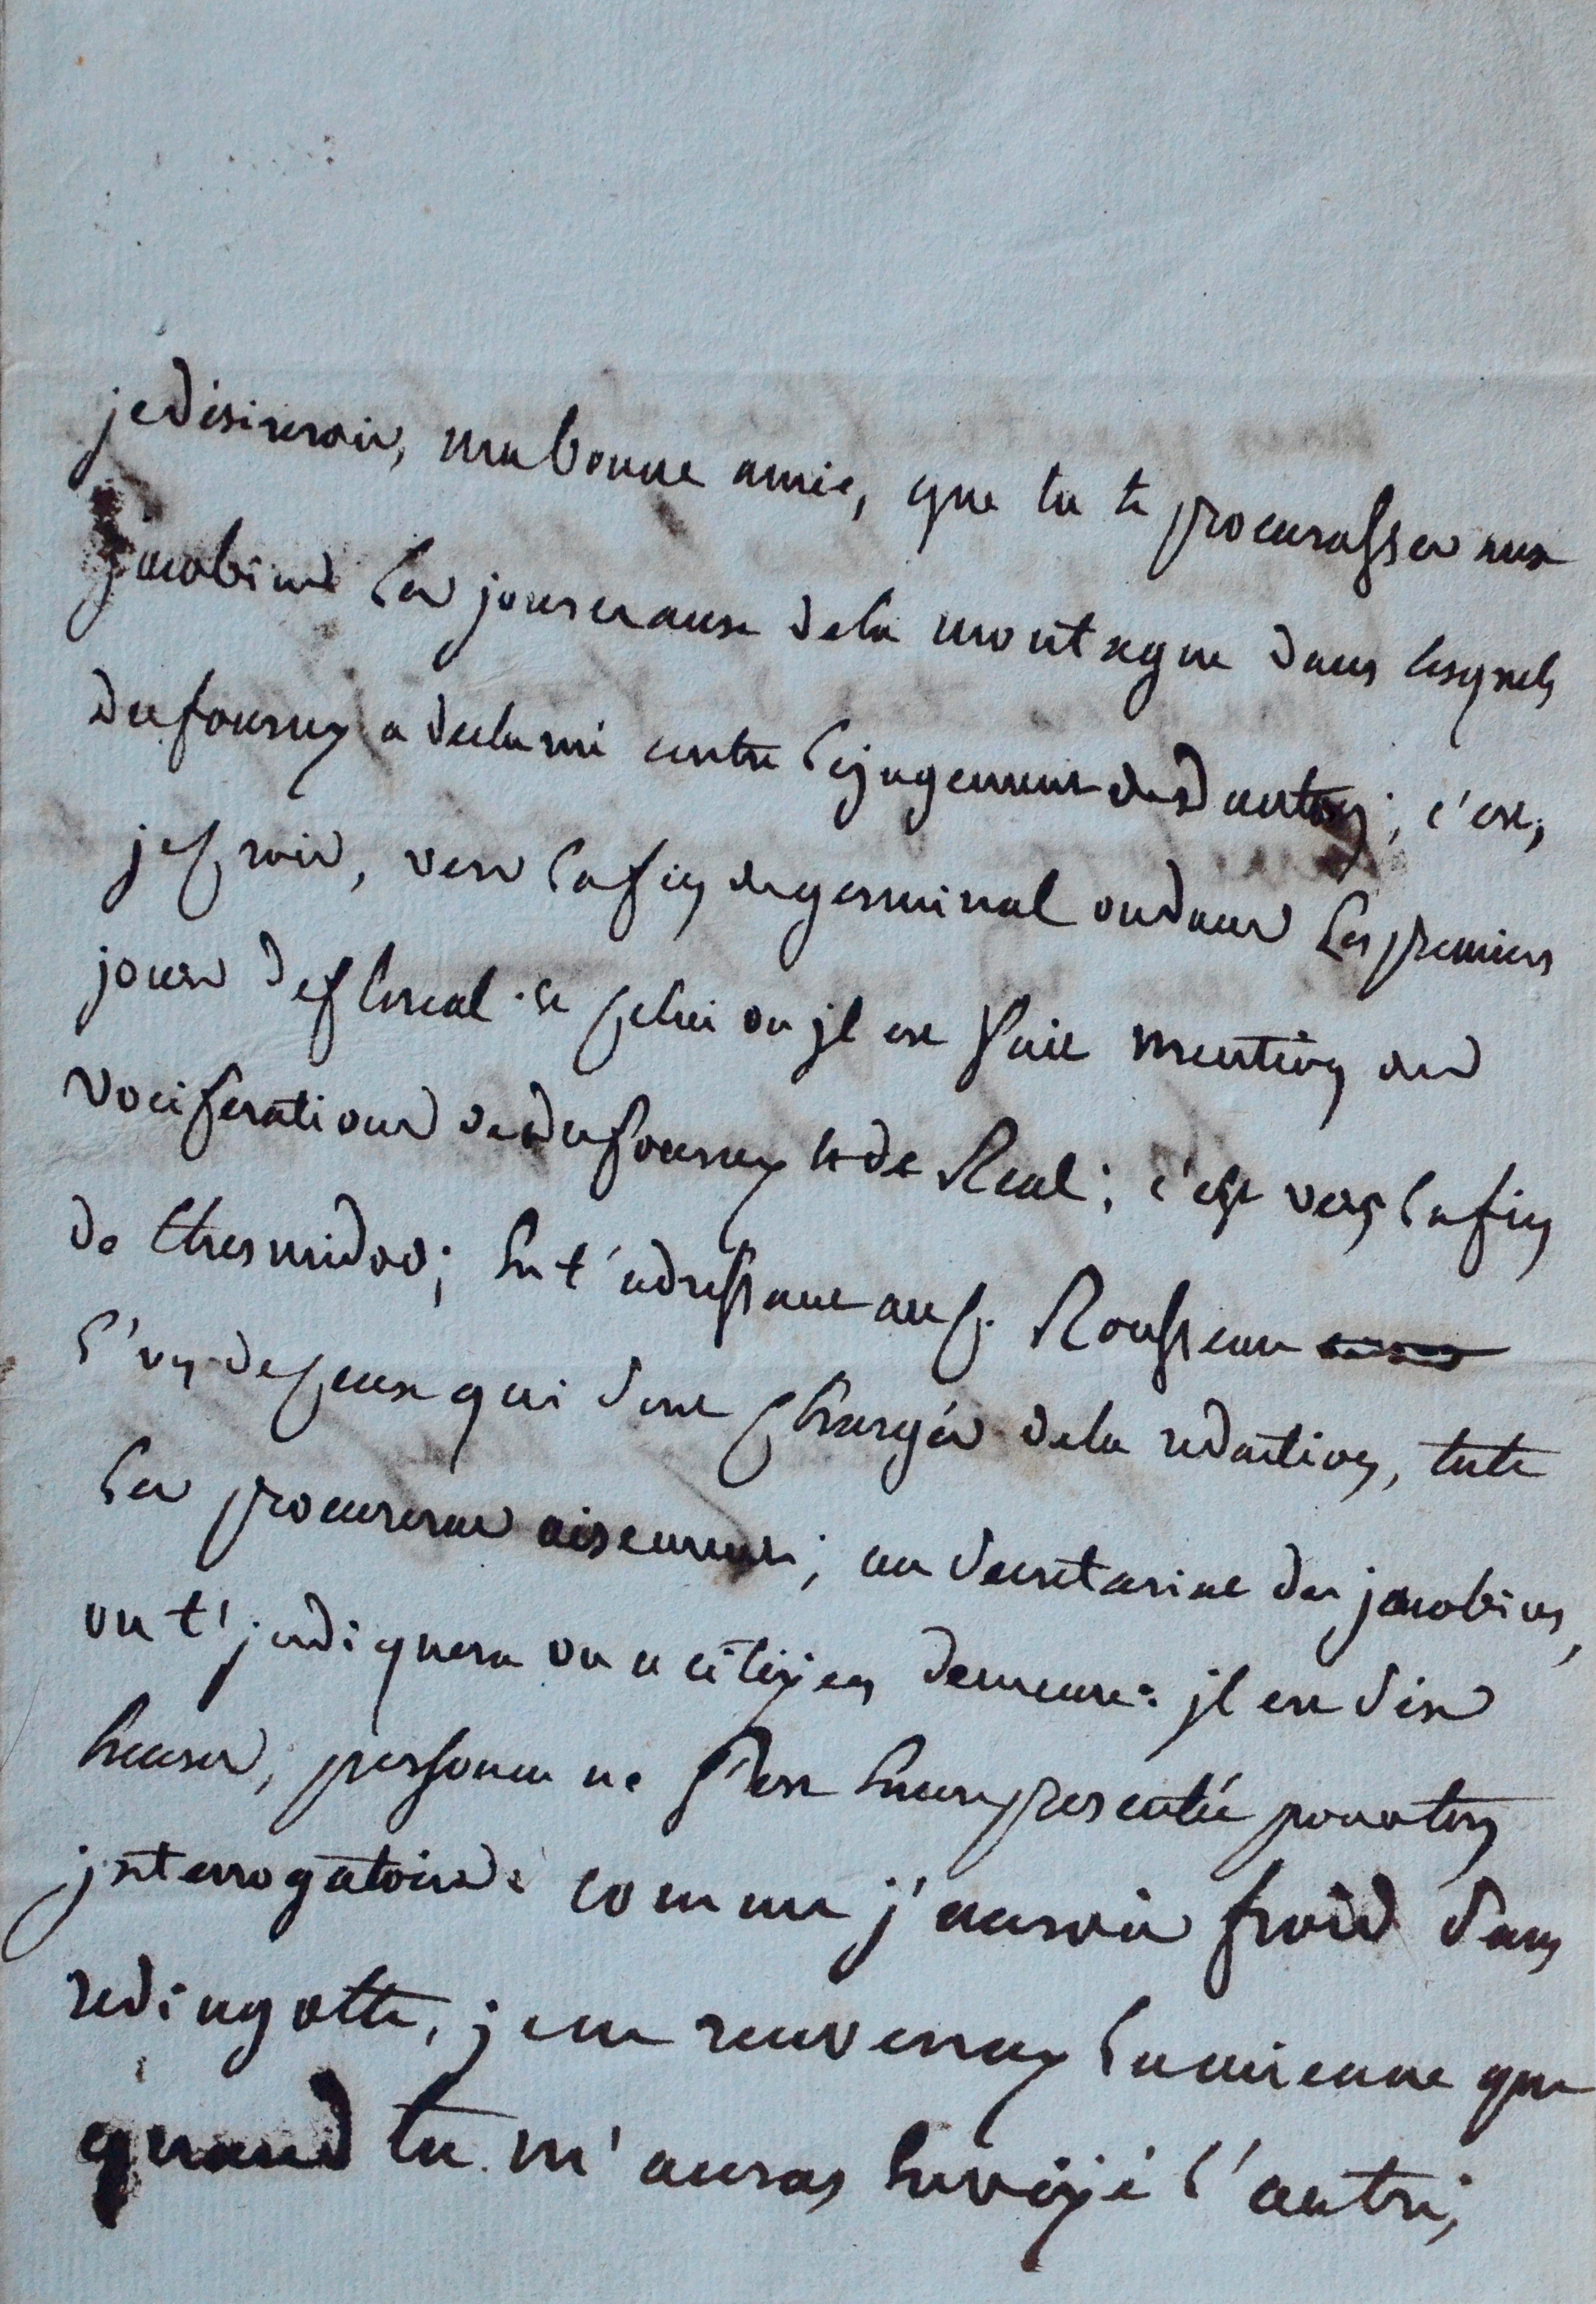 je desirerois, ma bonne amie, que tu te procurasses aux
jacobins les journaux de la montagne dans lesquels
dufourny a declamé contre le jugement de danton; c'est,
je crois, vers la fin de germinal ou dans les premiers
jours de floreal. et celui ou jl est fait mention des
vociferations de dufourny et de Real; c'est vers la fin
de thermidor; en t'adressant au c. Rousseau
l'un de ceux qui sont chargés de la redaction, tu te
les procureras aisement; au secretariat des jacobins,
on t'jndiquera ou ce citoyen demeure: jl est six
heures, personne ne s'est encore presenté pour
jnterrogatoire: comme j'aurois froid sans
redingotte, je ne renverray la mienne que
quand tu m'auras envoyé l'autre;